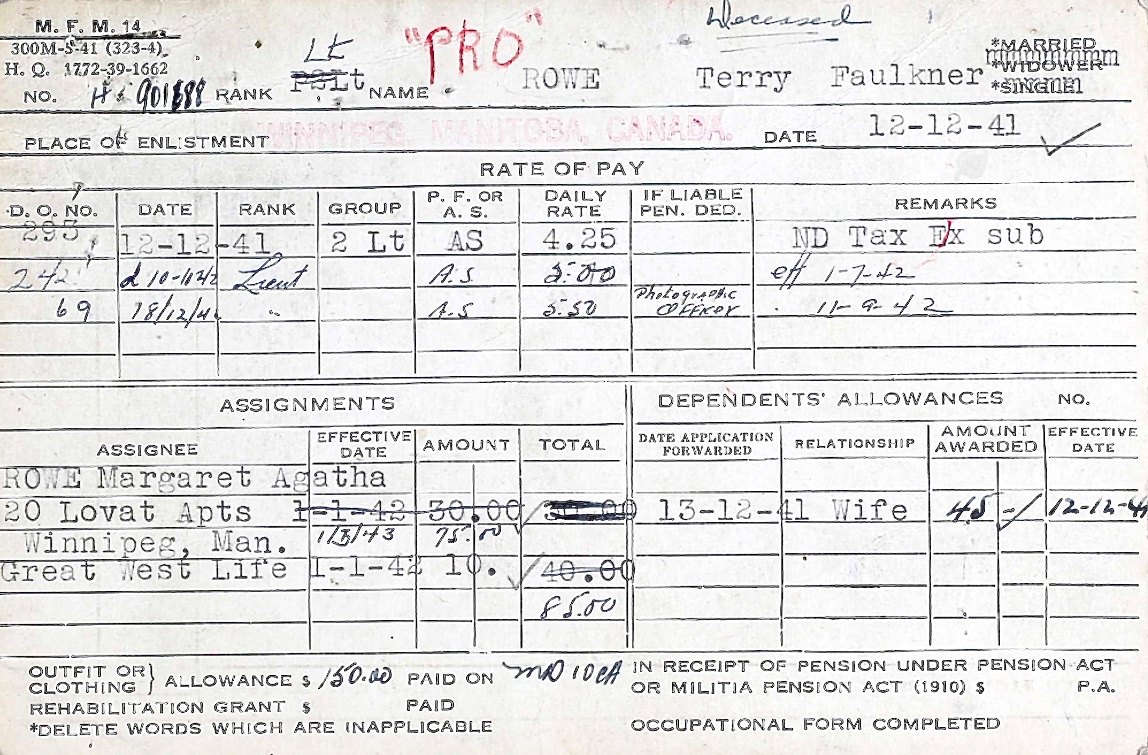 M. F. M. 14
300M-5-41 (323-4)
H. Q. 1772-39-1662
Deceased
"PRO"
Lt
NO. RANK P2Lt NAME ROWE Terry Faulkner
*MARRIED
*WIDOWER
*SINGLE
PLACE OF ENLISTMENT WINNIPEG, MANITOBA, CANADA. DATE 12-12-41
RATE OF PAY
D. O. NO. DATE RANK GROUP P. F. OR A. S. DAILY RATE IF LIABLE PEN. DED. REMARKS
293 12-12-41 2 Lt AS 4.25 ND Tax Ex sub
242 Lieut A.S. 5.00 eff 1-7-42
69 18/12/4 " A.S 5.50 Photographic Officer 11-9-42
ASSIGNMENTS DEPENDENTS' ALLOWANCES NO.
ASSIGNEE EFFECTIVE DATE AMOUNT TOTAL DATE APPLICATION FORWARDED RELATIONSHIP AMOUNT AWARDED EFFECTIVE DATE
ROWE Margaret Agatha
20 Lovat Apts 1-1-42 30.00 30.00 13-12-41 Wife 45 - 12-12-41
Winnipeg, Man. 1/3/43 75.00
Great West Life 1-1-42 10. 40.00
85.00
OUTFIT OR CLOTHING } ALLOWANCE $ 150.00 PAID ON MD 10 IN RECEIPT OF PENSION UNDER PENSION ACT
OR MILITIA PENSION ACT (1910) $ P.A.
REHABILITATION GRANT $ PAID
*DELETE WORDS WHICH ARE INAPPLICABLE OCCUPATIONAL FORM COMPLETED